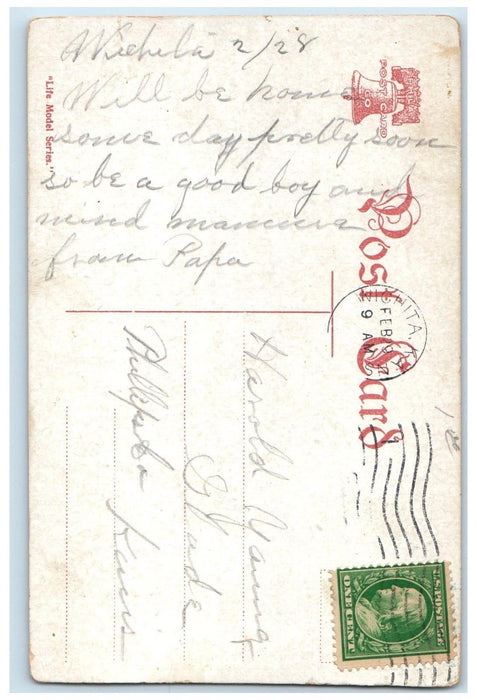 Wichita 2/28
Will be home
some day pretty soon
so be a good boy and
mind mamma
from Papa
"Life Model Series."
POST CARD
Post Card
FEB
9 AM
Harold Young
Kans
U.S. POSTAGE
ONE CENT